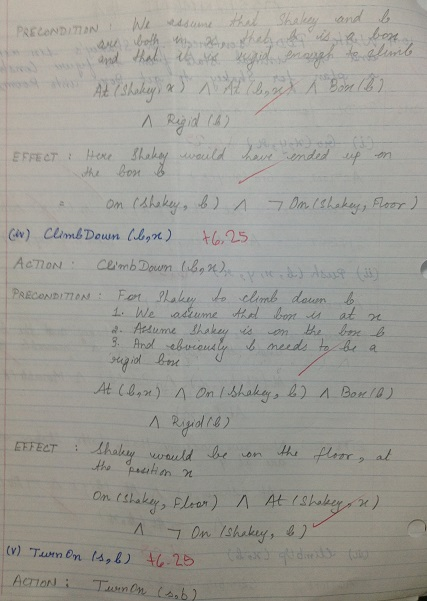 PRECONDITION: We assume that Shakey and b
are both in x, that b is a box
and that it is rigid enough to climb
At (Shakey, x) ∧ At (b, x) ∧ Box (b)
∧ Rigid (b)
EFFECT : Here Shakey would have ended up on
the box b
= On (Shakey, b) ∧ ¬ On (Shakey, Floor)
(iv) ClimbDown (b, x) +6.25
ACTION: ClimbDown (b, x)
PRECONDITION: For Shakey to climb down b
1. We assume that box is at x
2. Assume Shakey is on the box b
3. And obviously b needs to be a
rigid box
At (b, x) ∧ On (Shakey, b) ∧ Box (b)
∧ Rigid (b)
EFFECT : Shakey would be on the floor, at
the position x
On (Shakey, Floor) ∧ At (Shakey, x)
∧ ¬ On (Shakey, b)
(v) TurnOn (s, b) +6.25
ACTION: TurnOn (s, b)